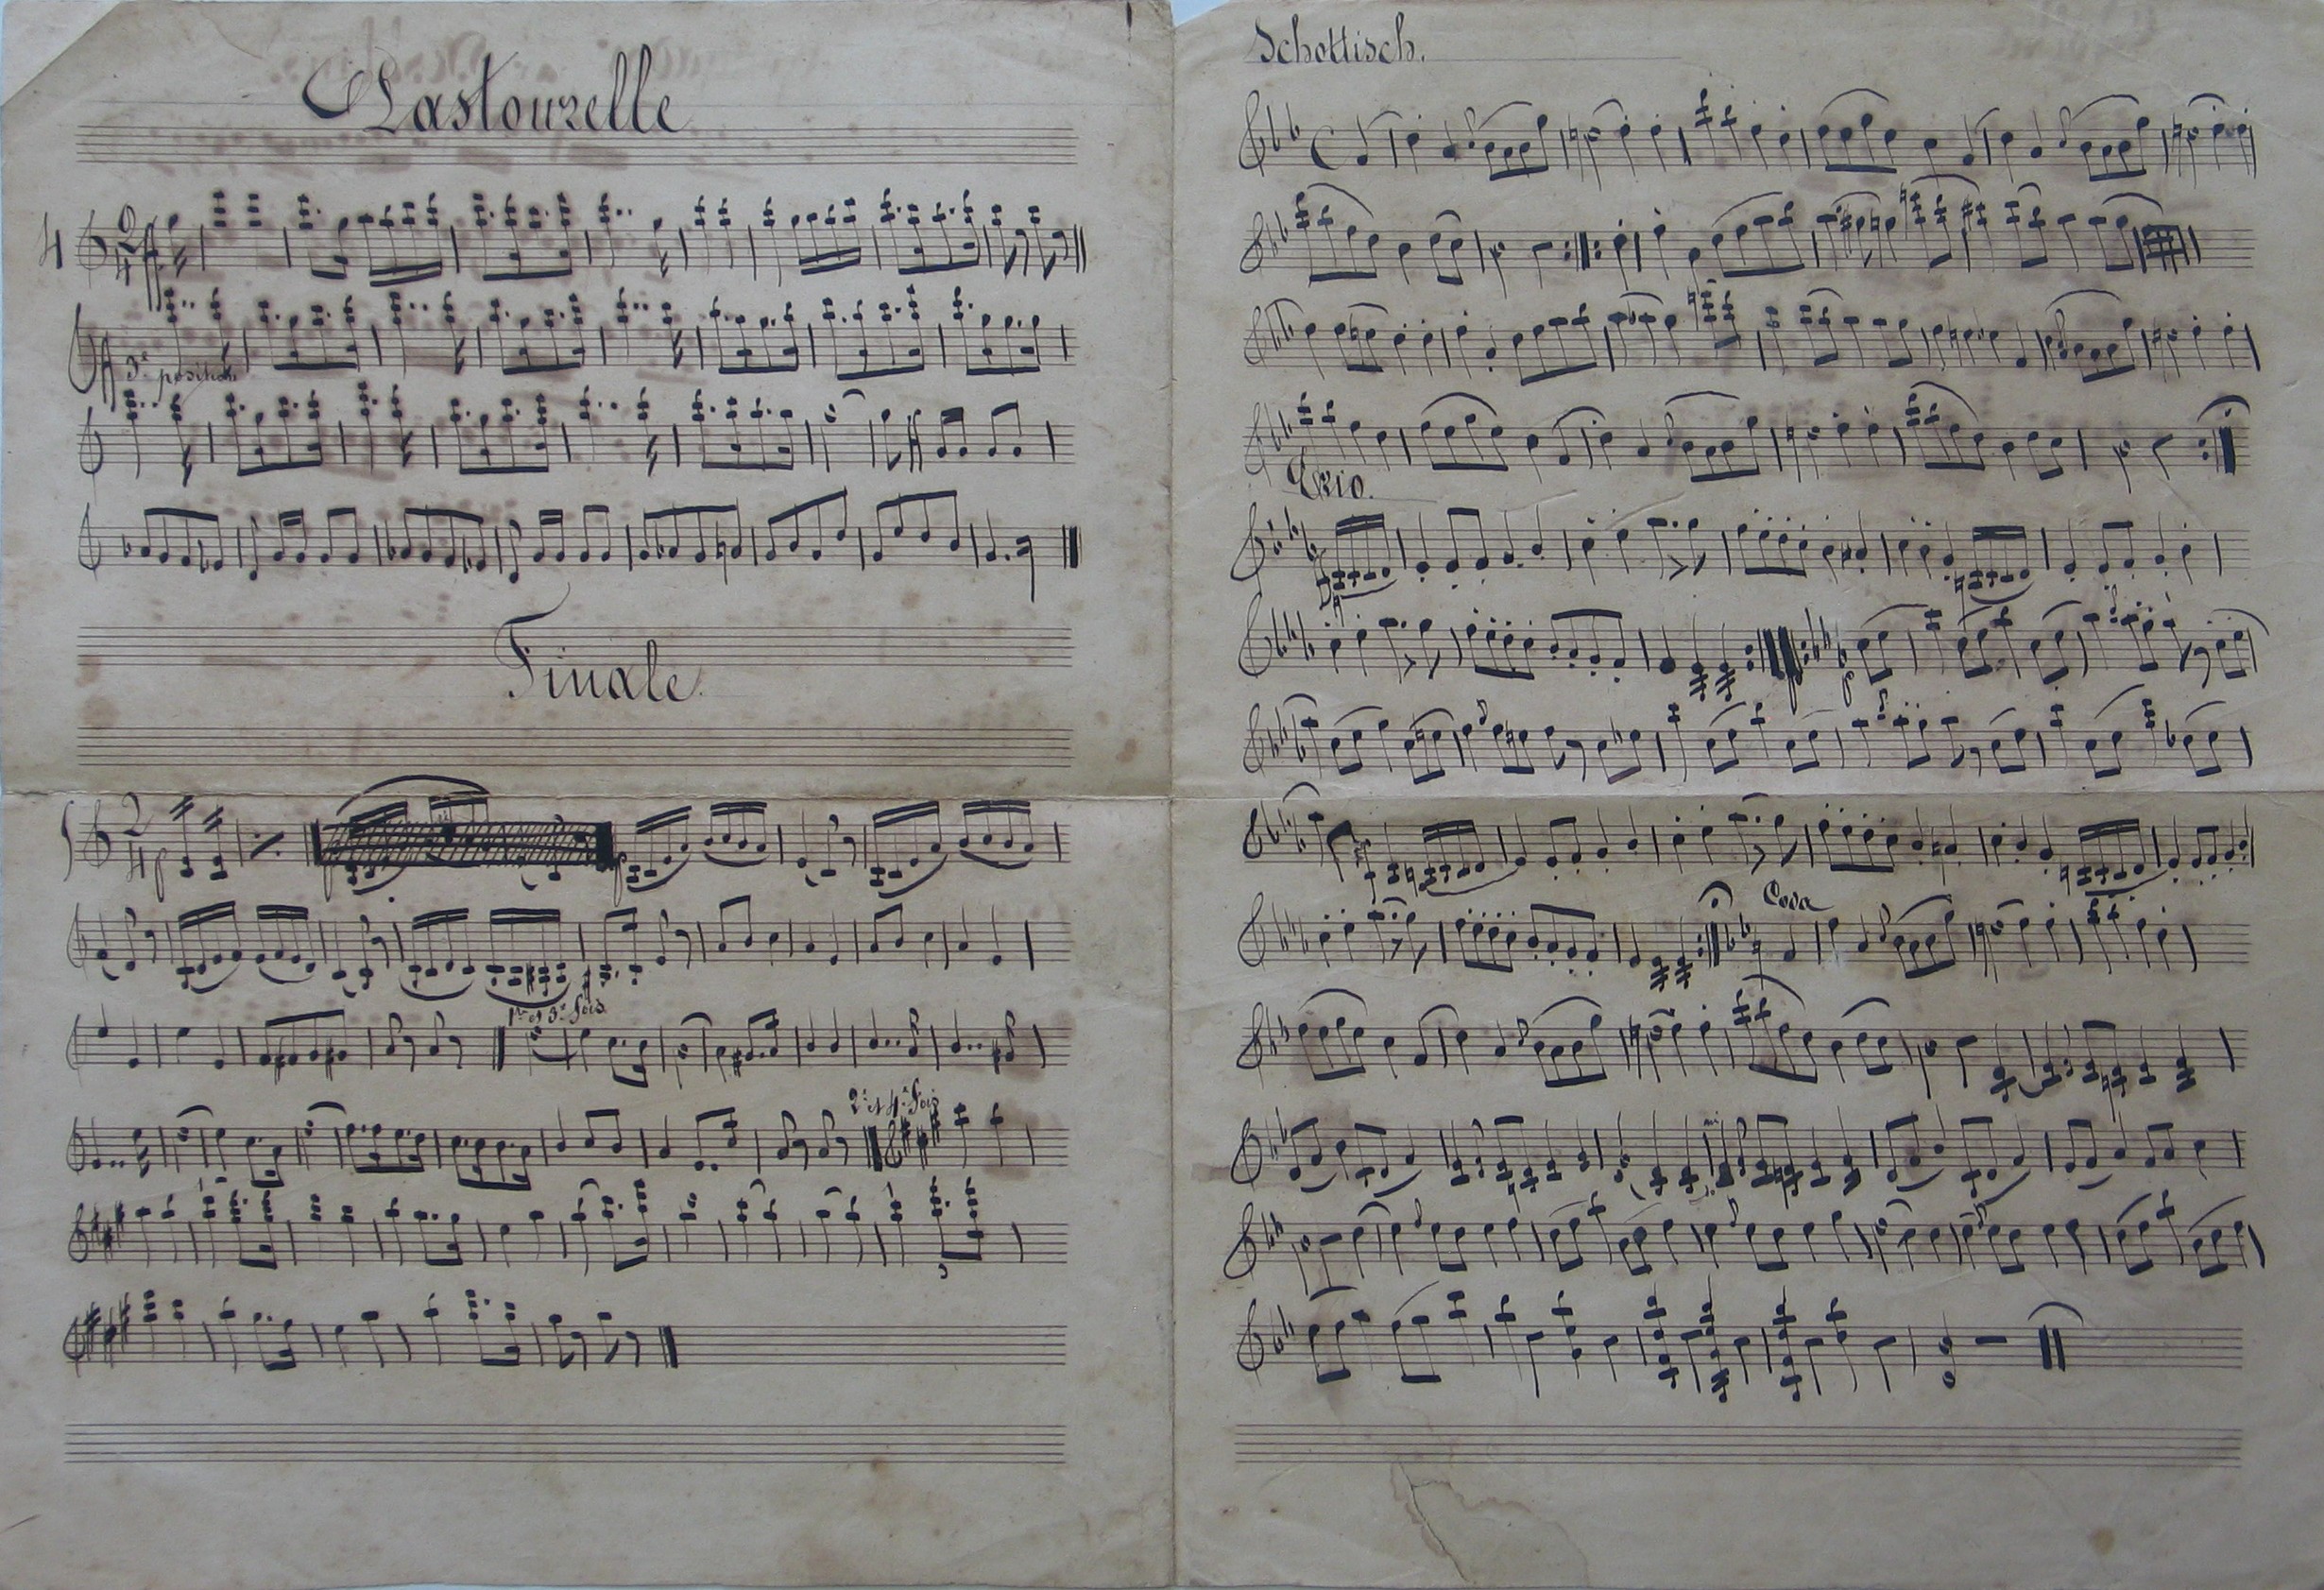 Pastourelle
4
2
4
ff
3e position
Finale
2
4 p
p
f
1re et 3e fois
2e et 4e fois
Schottisch.
C
Trio.
p
p
Coda